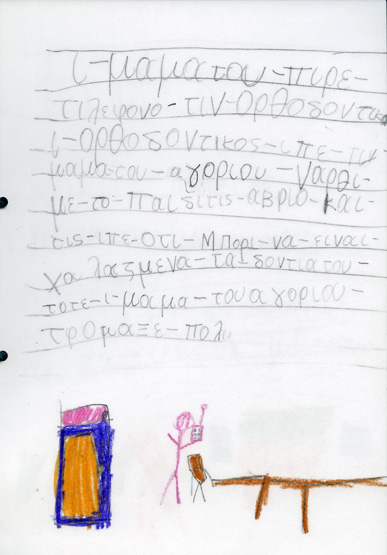 ι-μαματου-πιρε-
τιλειφονο-τιν-ορθοδοντικο
ι-ορθοδοντικος-ιπε-τιν
μαμα-του-αγοριου-ναρθι-
με-το-παιδιτις-αβριο-και-
τις-ιπε-οτι-Μπορι-να-ειναι-
χαλαζμενα-τα-δοντιατου-
τοτε-ι-μαμα-τουαγοριου-
τρομαξε-πολι